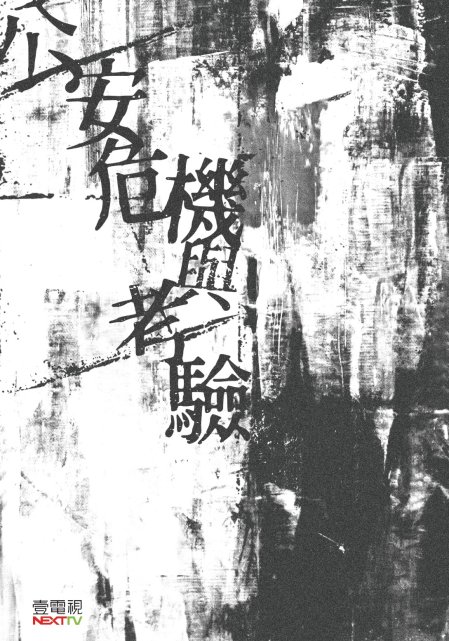 公安危機與考驗
壹電視
NEXTTV